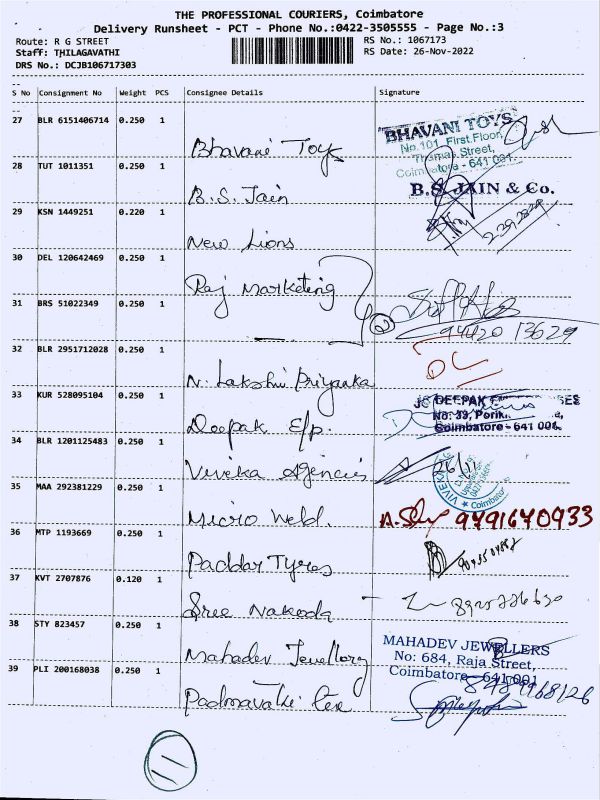 THE PROFESSIONAL COURIERS, Coimbatore
Delivery Runsheet - PCT - Phone No.:0422-3505555 - Page No.:3
Route: R G STREET
RS No.: 1067173
Staff: THILAGAVATHI
RS Date: 26-Nov-2022
DRS No.: DCJB106717303
S No Consignment No Weight PCS Consignee Details Signature
27 BLR 6151406714 0.250 1
Bhavani Toys
BHAVANI TOYS
No.101, First Floor,
Thomas Street,
Coimbatore - 641 001.
28 TUT 1011351 0.250 1
B.S. Jain
B.S. JAIN & Co.
29 KSN 1449251 0.220 1
New Lions
30 DEL 120642469 0.250 1
Raj Marketing
31 BRS 51022349 0.250 1
94420 13629
32 BLR 2951712028 0.250 1
N. Lakshmi Priyanka
33 KUR 528095104 0.250 1
Deepak E/p.
DEEPAK
Coimbatore - 641 001.
34 BLR 1201125483 0.250 1
Viveka Agencies
26/11
35 MAA 292381229 0.250 1
Micro Weld.
9791670933
36 MTP 1193669 0.250 1
Paddar Tyres
37 KVT 2707876 0.120 1
Sree Nakoda
38 STY 823457 0.250 1
Mahadev Jewellery
MAHADEV JEWELLERS
No: 684, Raja Street,
Coimbatore - 641 001
39 PLI 200168038 0.250 1
Padmavathi